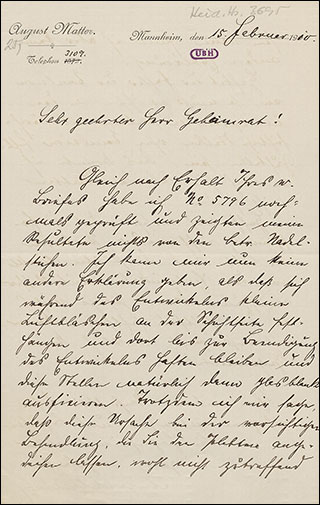 Heid. Hs. 3695
August Matter.
Mannheim, den 15. Februar 1910.
Telephon 3107.
UBH
Sehr geehrter Herr Geheimrat!
Gleich nach Erhalt Ihres w.
Briefes habe ich No 5796 noch-
mals geprüft und zeigten meine
Resultate nichts von den betr. Nadel-
stichen. Ich kann mir nun keine
andere Erklärung geben, als daß sich
während des Entwickelns kleine
Luftbläschen an der Schichtseite fest-
hängen und dort bis zur Beendigung
des Entwickelns haften bleiben und
diese Stellen natürlich dann glasblank
ausfixieren. Trotzdem ich mir sage,
daß diese Ursache bei der vorsichtigen
Behandlung, die Sie den Platten ange-
deihen lassen, wohl nicht zutreffend